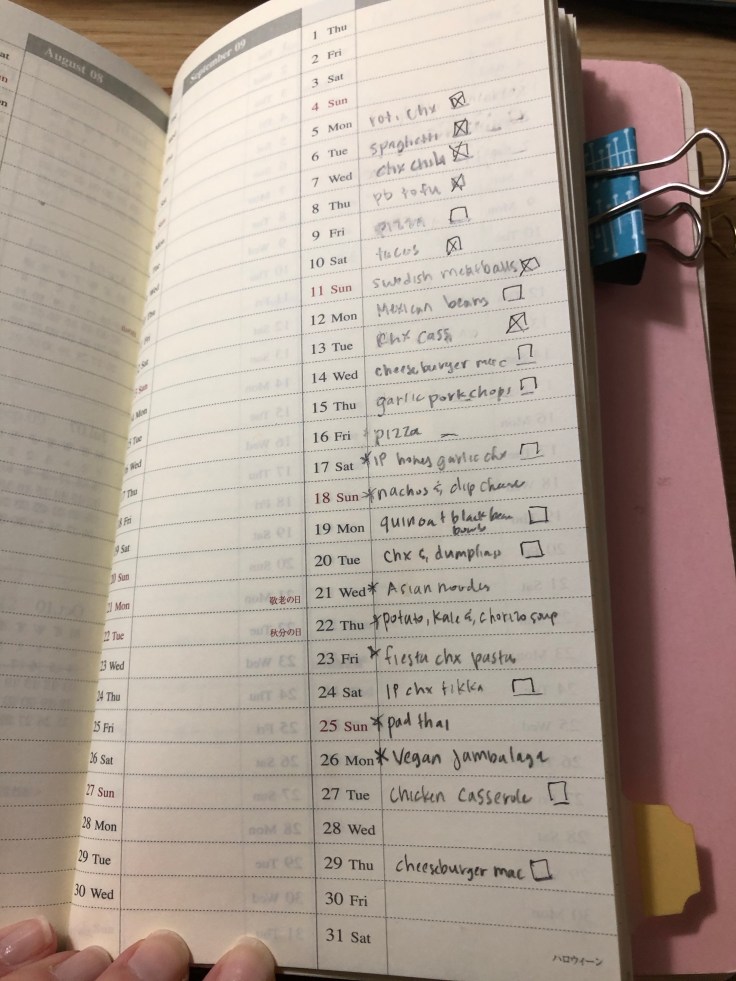 August 08
September 09
1 Thu
2 Fri
3 Sat
4 Sun
5 Mon roti. chx
6 Tue spaghetti
chx chili
7 Wed
8 Thu pb tofu
9 Fri pizza
10 Sat tacos
11 Sun swedish meatballs
12 Mon Mexican beans
13 Tue chx cass
14 Wed cheeseburger mac
15 Thu garlic pork chops
16 Fri pizza
17 Sat * IP honey garlic chx
18 Sun * nachos &
19 Mon quinoa + black bean
bowls
20 Tue chx & dumplings
21 Wed * Asian noodles
22 Thu * potato, kale &, chorizo soup
23 Fri * fiesta chx pasta
24 Sat IP chx tikka
25 Sun * pad thai
26 Mon * Vegan jambalaya
27 Tue chicken casserole
28 Wed
29 Thu cheeseburger mac
30 Fri
31 Sat
ハロウィーン
Sat
Sun
Mon
Tue
Wed
7 Thu
8 Fri
Sat
20 Sun
21 Mon 敬老の日
22 Tue 秋分の日
23 Wed
24 Thu
25 Fri
26 Sat
27 Sun
28 Mon
29 Tue
30 Wed